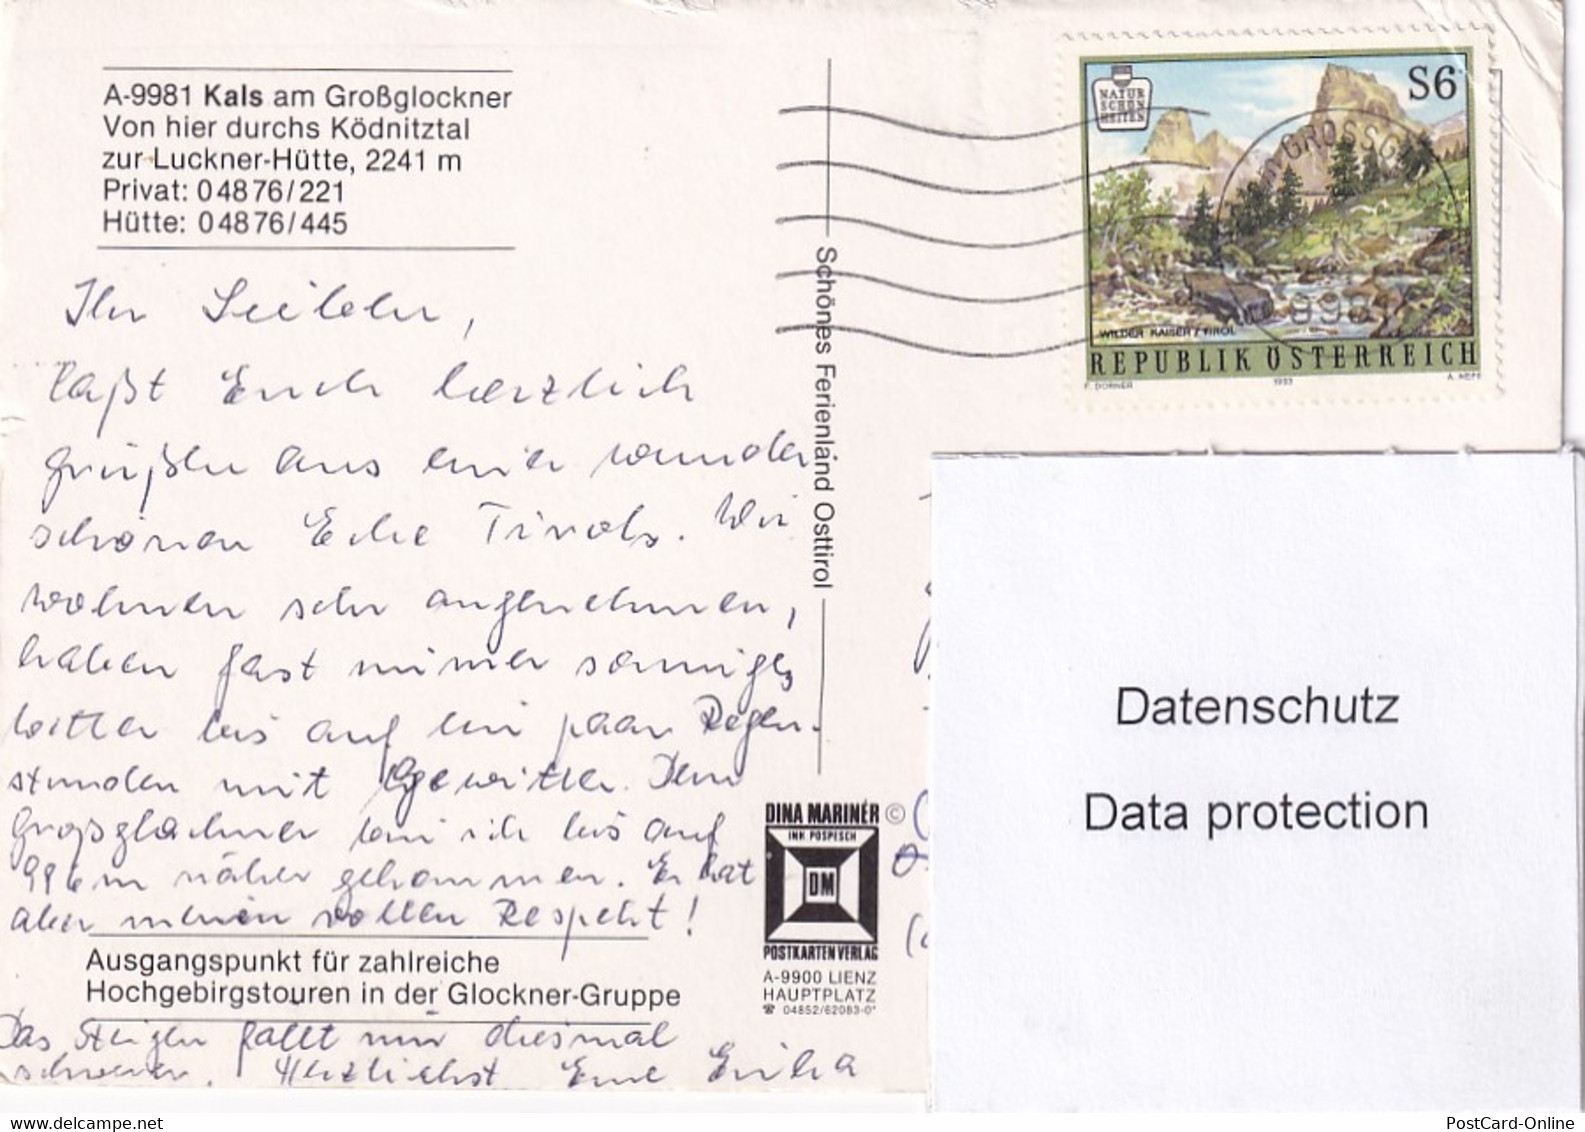 A-9981 Kals am Großglockner
Von hier durchs Ködnitztal
zur Luckner-Hütte, 2241 m
Privat: 04876/221
Hütte: 04876/445
Ihr Lieben,
laßt Euch herzlich
grüßen aus einer wunder
schönen Ecke Tirols. Wir
wohnen sehr angenehmen,
haben fast immer sonniges
Wetter bis auf ein paar Regen-
stunden mit Gewitter. Dem
Großglockner bin ich bis auf
996 m näher gekommen. Er hat
aber meinen vollen Respekt!
Ausgangspunkt für zahlreiche
Hochgebirgstouren in der Glockner-Gruppe
Das Steigen fällt mir diesmal
schwerer. Herzlichst Eure Erika
Schönes Ferienland Osttirol
DINA MARINÉR ©
INH POSPESCH
DM
POSTKARTEN VERLAG
A-9900 LIENZ
HAUPTPLATZ
☎ 04852/62083-0*
NATUR
SCHÖN
HEITEN
S6
GROSSGL
WILDER KAISER / TIROL
REPUBLIK ÖSTERREICH
F. DORNER 1993
Datenschutz
Data protection
PostCard-Online
delcampe.net